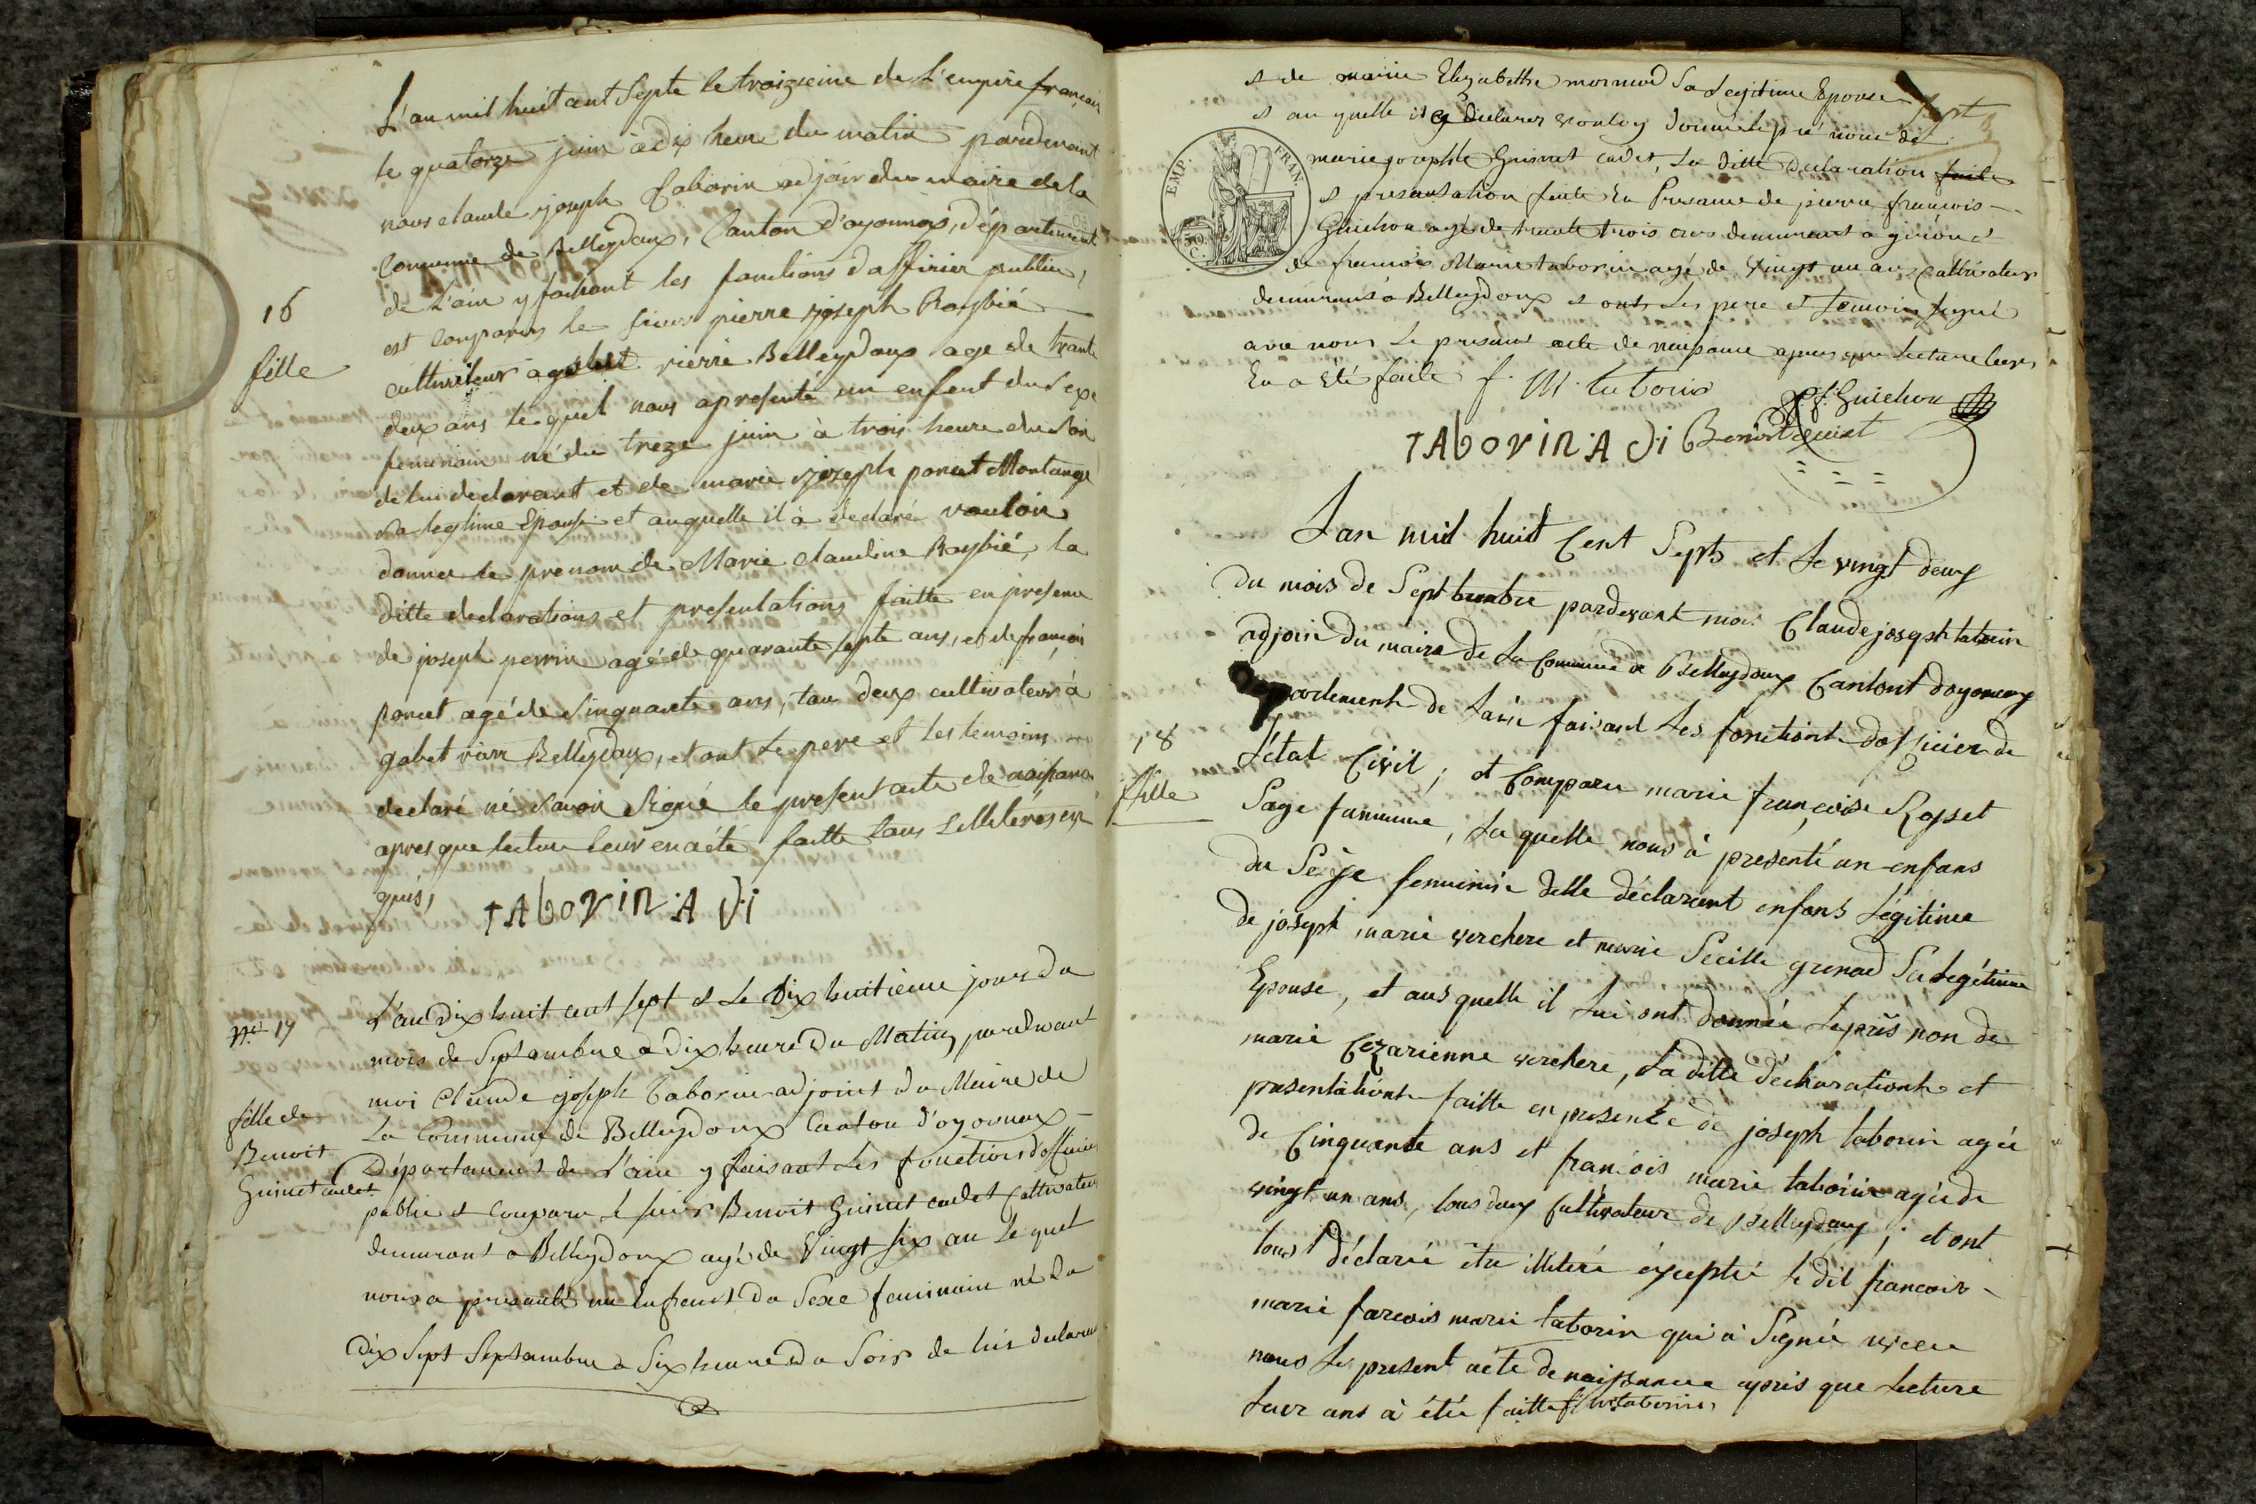 L'an mil huit cent septe le troizieme de L'empire français
le quatorze juin à dix heure du matin pardevant
nous claude joseph Taborin adjoin du maire de la
Commune de Belleydoux, Canton d'oyonnax, département
de L'ain y faisant les fonctions d'afficier public,
est comparus le sieur pierre joseph Rossié
16
fille
cultivateur a gobet rierre Belleydoux age de trante
deux ans le quel nous a presenté un enfent du sexe
feminain né du treze juin à trois heure du soir
de lui declarant et de marie joseph poncet Montange
sa legtime Epouse et auquelle il à declaré vouloir
donner le prenom de Marie claudine Rossié, la
ditte declarations et presentations faitte en presence
de joseph perrin agé de quarante septe ans, et de françois
poncet agé de sinquante ans, tou deux cultivateur à
gobet rierr Belleydoux, et ont le pere et les temoins
declaré né savoir signé le present acte de naissance
apres que lecture leur en a été faitte
quis,
TABOVIN A Di
N° 17
fille de
Benoit
Guinet cadet
L'an Dix huit cent sept et Le Dix huitieme jours du
mois de Septambre à Dix heure Du Matin pardevant
moi Claude joseph Taborin adjoint du Maire de
La Commune de Belleydoux Canton D'oyonnax
Département de L'ain y faisant Les fonctions D'officier
public et Comparu Le sieur Benoit Guinet cadet Cultivateur
demeurant a Belleydoux agé de Vingt six an Le quel
nous a presanté un Enfeant du Sexe feminain né Du
Dix Sept Septambre a Six heure Du Soir de lui declarant
et de marie Elizabethe mornaud Sa Legitime Epouse
et au quelle il a Declarer vouloy donné le pré nom de
marie josephte Guinet cadet, La ditte Declaration faite
EMP. FRAN.
50 C.
et presantation faite En Presance de pierre françois
Guichon agé de trante trois ans demeurant a giron et
de francois Marie taborin agé de Vingt un an Cultivateur
demeurant à Belleydoux et ont Les pere et temoin signé
avec nous Le presant acte de naissance apres que Lecture leur
En a Eté faite f. M. taborin
P. f. Guichon
TABOVIN A Di Benoit Guinet
Lan mil huit Cent Septs et Le vingt deux
du mois de Septtembre pardevant moi Claude joseph taborin
adjoin Du maire De La Commune de Belleydoux Cantont doyonnax
Departement de Lain faisant Les fonctiont d'officier de
18
fille
L'état Civil, et Comparu marie françoise Rosset
Sage fammme, La quelle nous à presenté un enfans
du Sexe feminin delle déclarant enfans Légitime
de joseph marie verchere et marie Secille grenard Sa Legétime
Epouse, et aus quelle il Lui ont donnée Le prés non de
marie Cezarienne verchere, La ditte déclarationt et
presentationt faitte en presence de joseph taborin agée
de Cinquante ans et francois marie taborin agée de
vingt un ans, tous deux Cultivateur de Belleydoux, et ont
tous déclaré etre illiteré éxceptée Le dit francois
marie farcois marie taborin qui à Signée avec
nous Le present acte de naissance apris que Lecture
Leur ans à étée faitte f m taborin